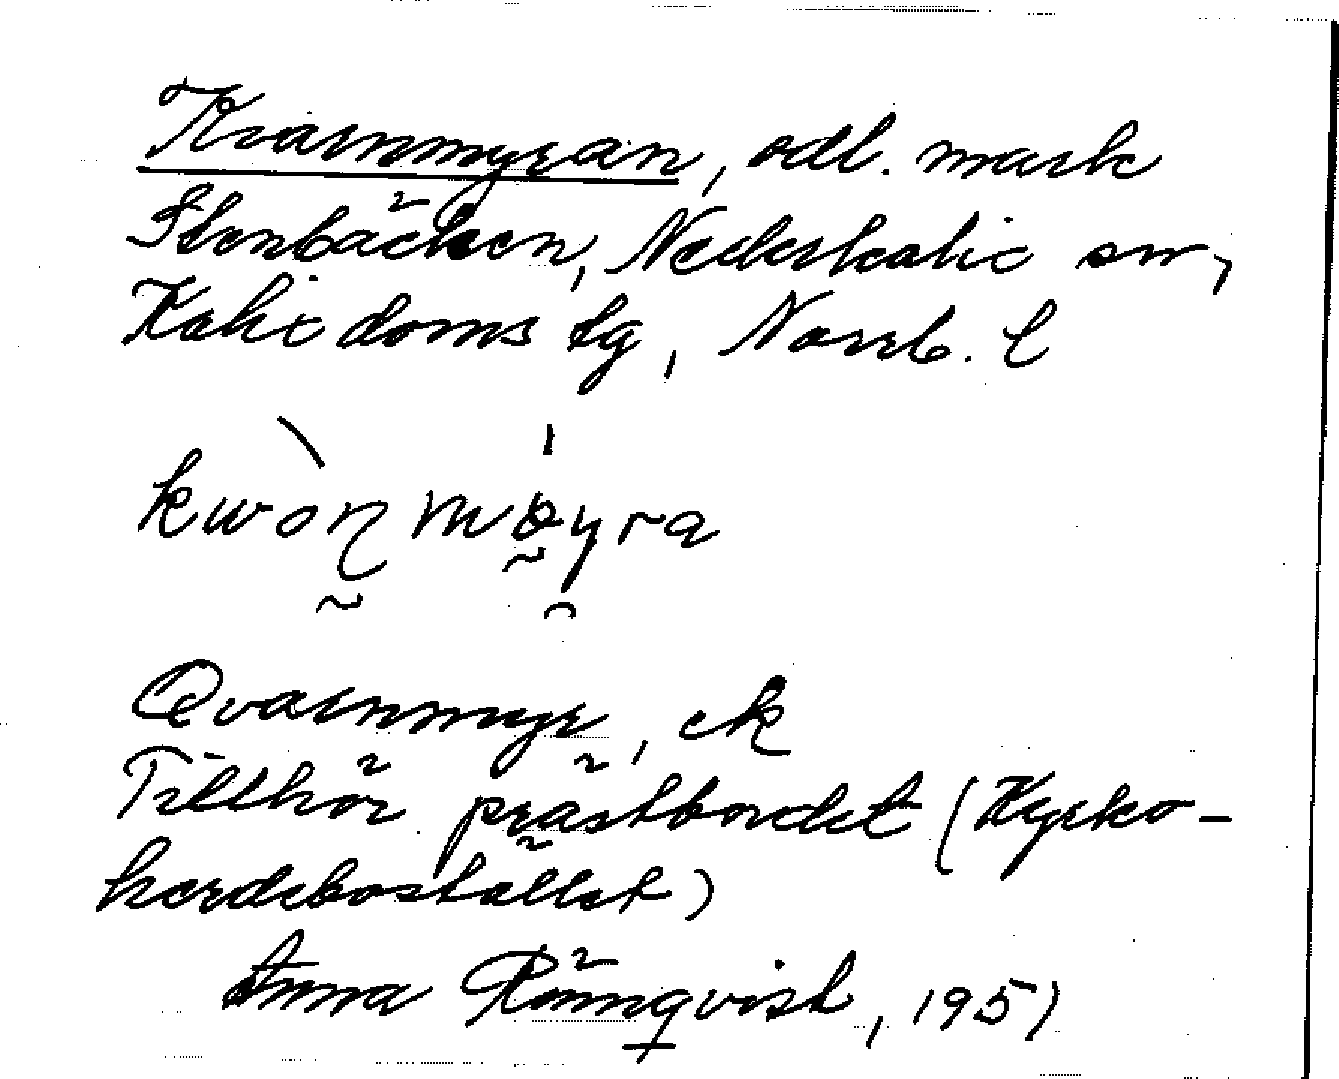 Kvarnmyran, odl. mark
Stenbäcken, Nederkalix sn,
Kalix doms lg, Norrb. l
Qvarnmyr, ek
Tillhör prästbordet (Kyrko-
herdebostället)
Anna Rönnqvist, 1951